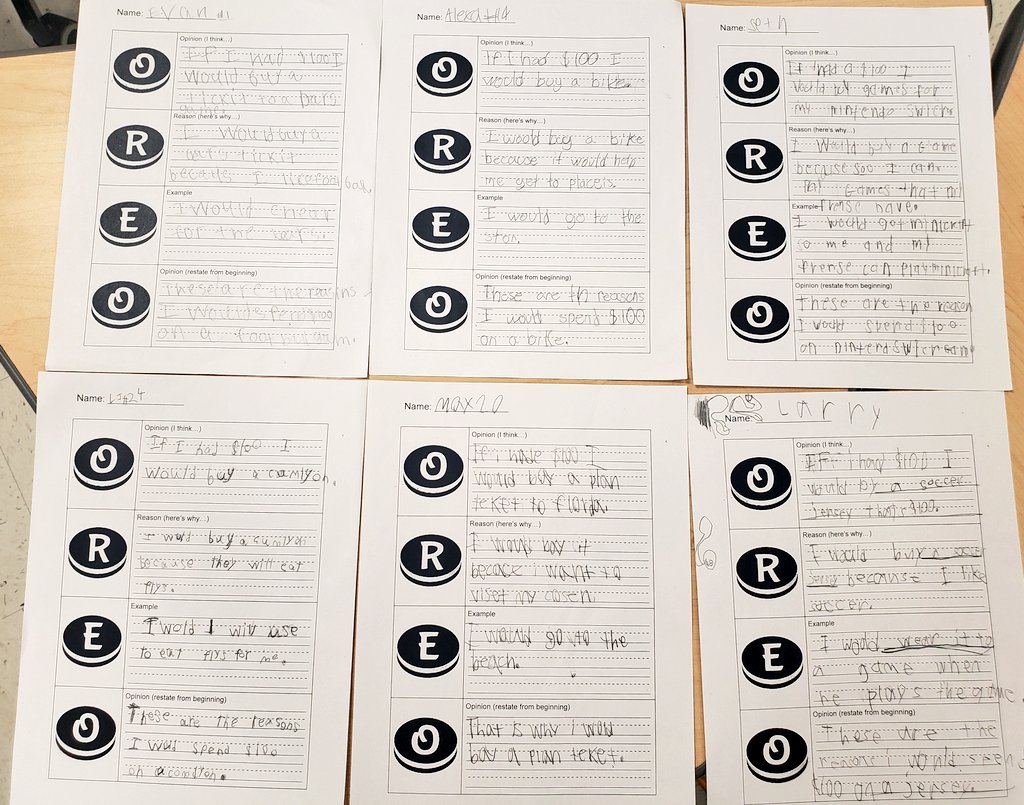 Name: Evan
O
Opinion (I think...)
If I had $100 I
would buy a
tickit to a
game.
R
Reason (here's why...)
I would buy a
tickit
becaus I like
E
Example
I would chear
for the
O
Opinion (restate from beginning)
These are the reasons
I would
on a
Name: Alexa #14
O
Opinion (I think...)
If I had $100 I
would buy a bike.
R
Reason (here's why...)
I would buy a bike
because it would help
me get to placeis.
E
Example
I would go to the
stor.
O
Opinion (restate from beginning)
These are th reasons
I would spend $100
on a bike.
Name: seth
O
Opinion (I think...)
If I had a $100 I
would buy games for
my nintendo swich.
R
Reason (here's why...)
I would buy a game
because soo I can
games that mi
frense have.
E
Example
I would get minicraft
so me and mi
frense can play minicraft.
O
Opinion (restate from beginning)
these are the reason
I would spend $100
on
Name: #24
O
Opinion (I think...)
If I had $100 I
would buy a camlyon.
R
Reason (here's why...)
I wold buy a camlyon
because they will eat
flys.
E
Example
I wold I will use
to eat flys for me.
O
Opinion (restate from beginning)
These are the reasons
I would spend $100
on a
Name: max 20
O
Opinion (I think...)
If i have $100 I
would buy a plan
teket to
R
Reason (here's why...)
I would buy it
becace i wount to
viset my cosen.
E
Example
I would go to the
beach.
O
Opinion (restate from beginning)
That is why i wold
buy a plan teket.
Name: Larry
O
Opinion (I think...)
IF i had $100 I
would by a soccer
Jersey thats $100.
R
Reason (here's why...)
I would buy a soccer
jersey because I like
soccer.
E
Example
I would wear it to
a game when
he plays the game.
O
Opinion (restate from beginning)
These are the
resons i would
$100 on a Jersey.